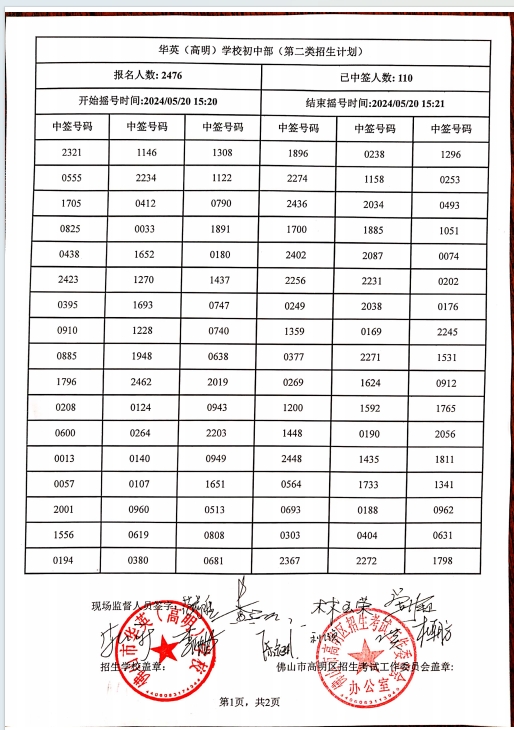 华英（高明）学校初中部（第二类招生计划）
报名人数: 2476 已中签人数: 110
开始摇号时间:2024/05/20 15:20 结束摇号时间:2024/05/20 15:21
中签号码 中签号码 中签号码 中签号码 中签号码 中签号码
2321 1146 1308 1896 0238 1296
0555 2234 1122 2274 1158 0253
1705 0412 0790 2436 2034 0493
0825 0033 1891 1700 1885 1051
0438 1652 0180 2402 2087 0074
2423 1270 1437 2256 2231 0202
0395 1693 0747 0249 2038 0176
0910 1228 0740 1359 0169 2245
0885 1948 0638 0377 2271 1531
1796 2462 2019 0269 1624 0912
0208 0124 0943 1200 1592 1765
0600 0264 2203 1448 0190 2056
0013 0140 0949 2448 1435 1811
0057 0107 1651 0564 1733 1341
2001 0960 0513 0693 0188 0962
1556 0619 0808 0303 0404 0631
0194 0380 0681 2367 2272 1798
现场监督人员签字:
招生学校盖章: 佛山市高明区招生考试工作委员会盖章:
佛山市华英（高明）学校
办公室
第1页，共2页